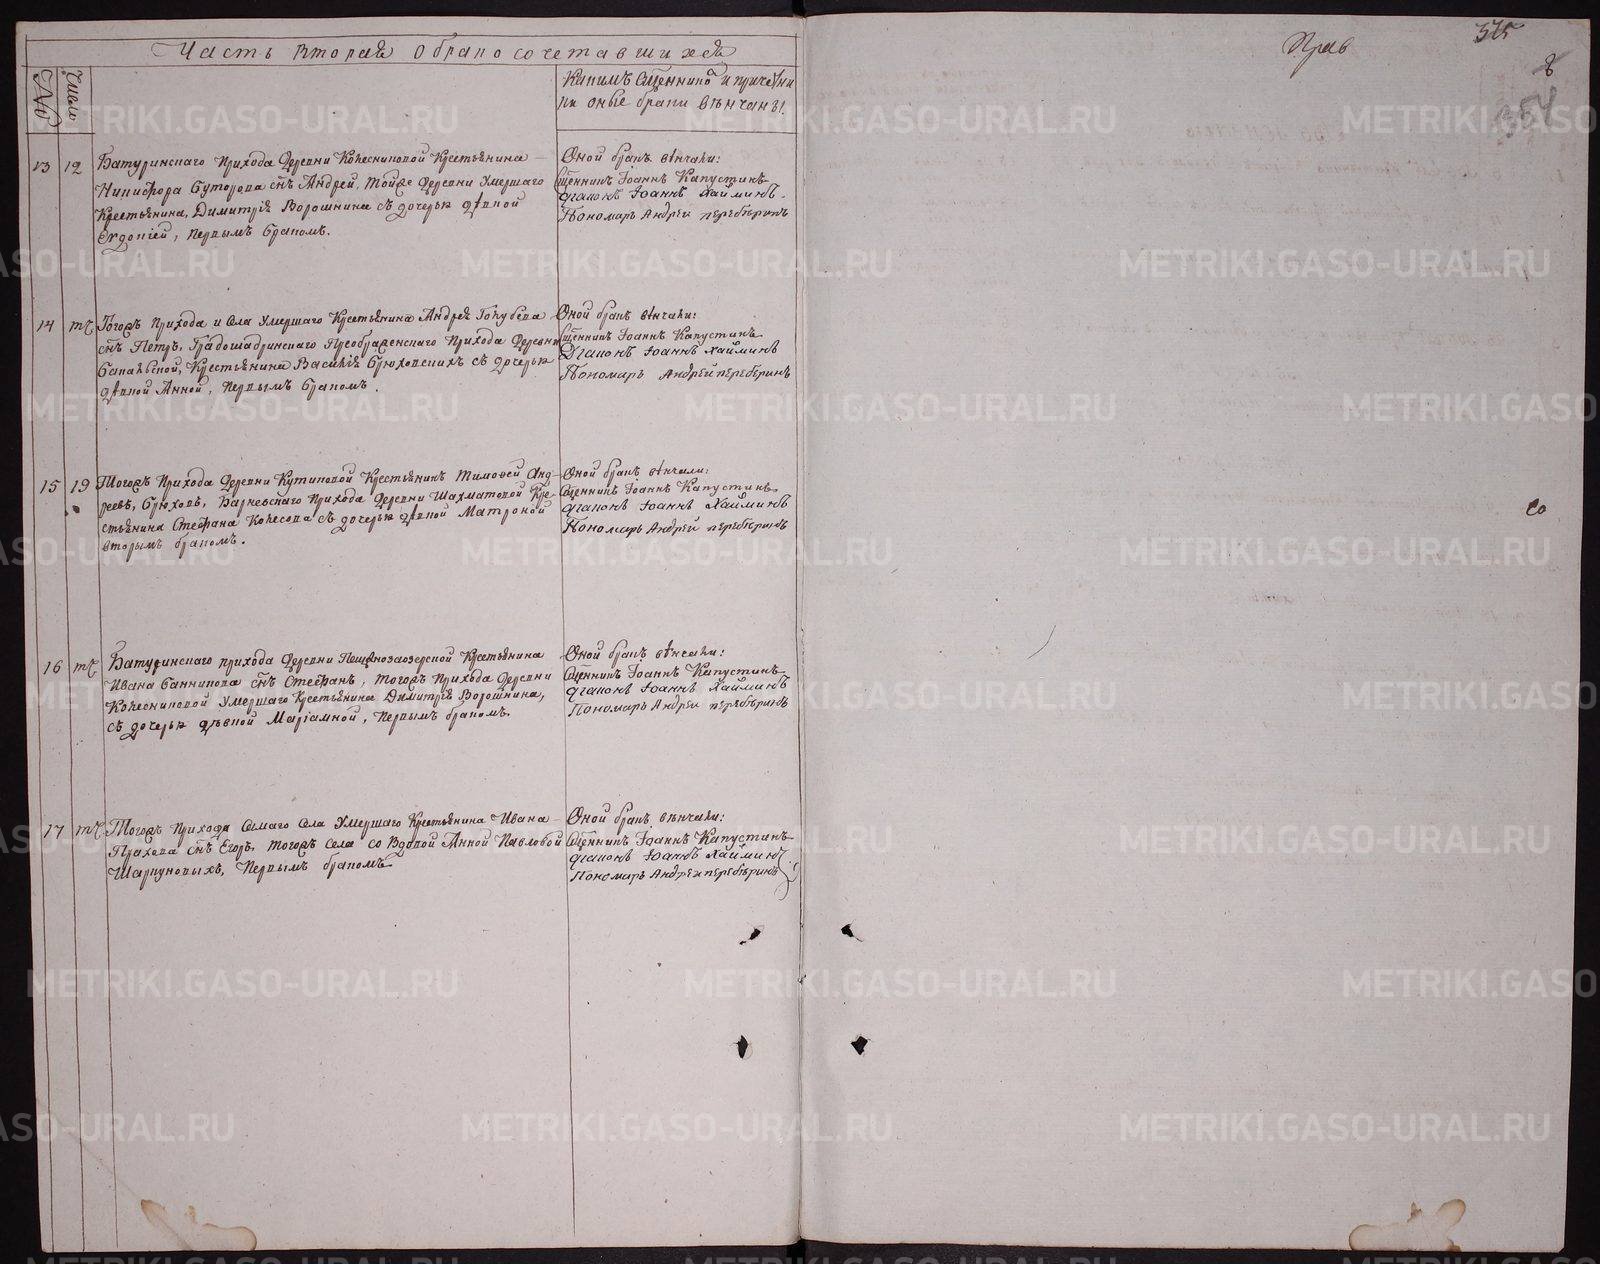 Часть вторая о бракосочетавшихся
№
Число
Каким священнико и причетни
ки оные браки венчаны
13 12 Батуринскаго прихода деревни Колесниковой Крестьянина
Никифора Буторова снъ Андрей, тойже деревни умершаго
Крестьянина, Димитрія Ворошнина съ дочерью девкой
Евдокіей, первымъ бракомъ.
Оной бракъ венчали:
Сщенникъ Іоаннъ Капустинъ
діаконъ Іоаннъ Хайминъ
Пономарь Андрей перебѣринъ
14 тч Тогожъ прихода и села умершаго Крестьянина Андрея Голубева
снъ Петръ, Градошадринскаго Преображенскаго прихода деревни
Крестьянина Василія Брюховскихъ съ дочерью
девкой Анной, первымъ бракомъ.
Оной бракъ венчали:
Сщенникъ Іоаннъ Капустинъ
Діаконъ Іоаннъ Хайминъ
Пономарь Андрей перебѣринъ
15 19 Тогожъ прихода деревни Кутиковой Крестьянинъ Тимофей Анд-
реевъ, Брюховъ, Барневскаго прихода деревни Шахматовой Кре-
стьянина Стефана Колесова съ дочерью девкой Матроной
вторымъ бракомъ.
Оной бракъ венчали:
Сщенникъ Іоаннъ Капустинъ
діаконъ Іоаннъ Хайминъ
Пономарь Андрей перебѣринъ
16 тч Батуринскаго прихода деревни Пещанозаозерской Крестьянина
Ивана Банникова снъ Стефанъ, тогожъ прихода деревни
Колесниковой умершаго Крестьянина Димитрія Ворошнина,
съ дочерью девкой Маріамной, первымъ бракомъ.
Оной бракъ венчали:
Сщенникъ Іоаннъ Капустинъ
діаконъ Іоаннъ Хайминъ
Пономарь Андрей перебѣринъ
17 тч Тогожъ прихода самаго села умершаго Крестьянина Ивана
снъ Егоръ, тогожъ села со вдовой Анной Павловой
первымъ бракомъ
Оной бракъ венчали:
Сщенникъ Іоаннъ Капустинъ
діаконъ Іоаннъ Хайминъ
Пономарь Андрей перебѣринъ
Прав
375
8
354
со
METRIKI.GASO-URAL.RU